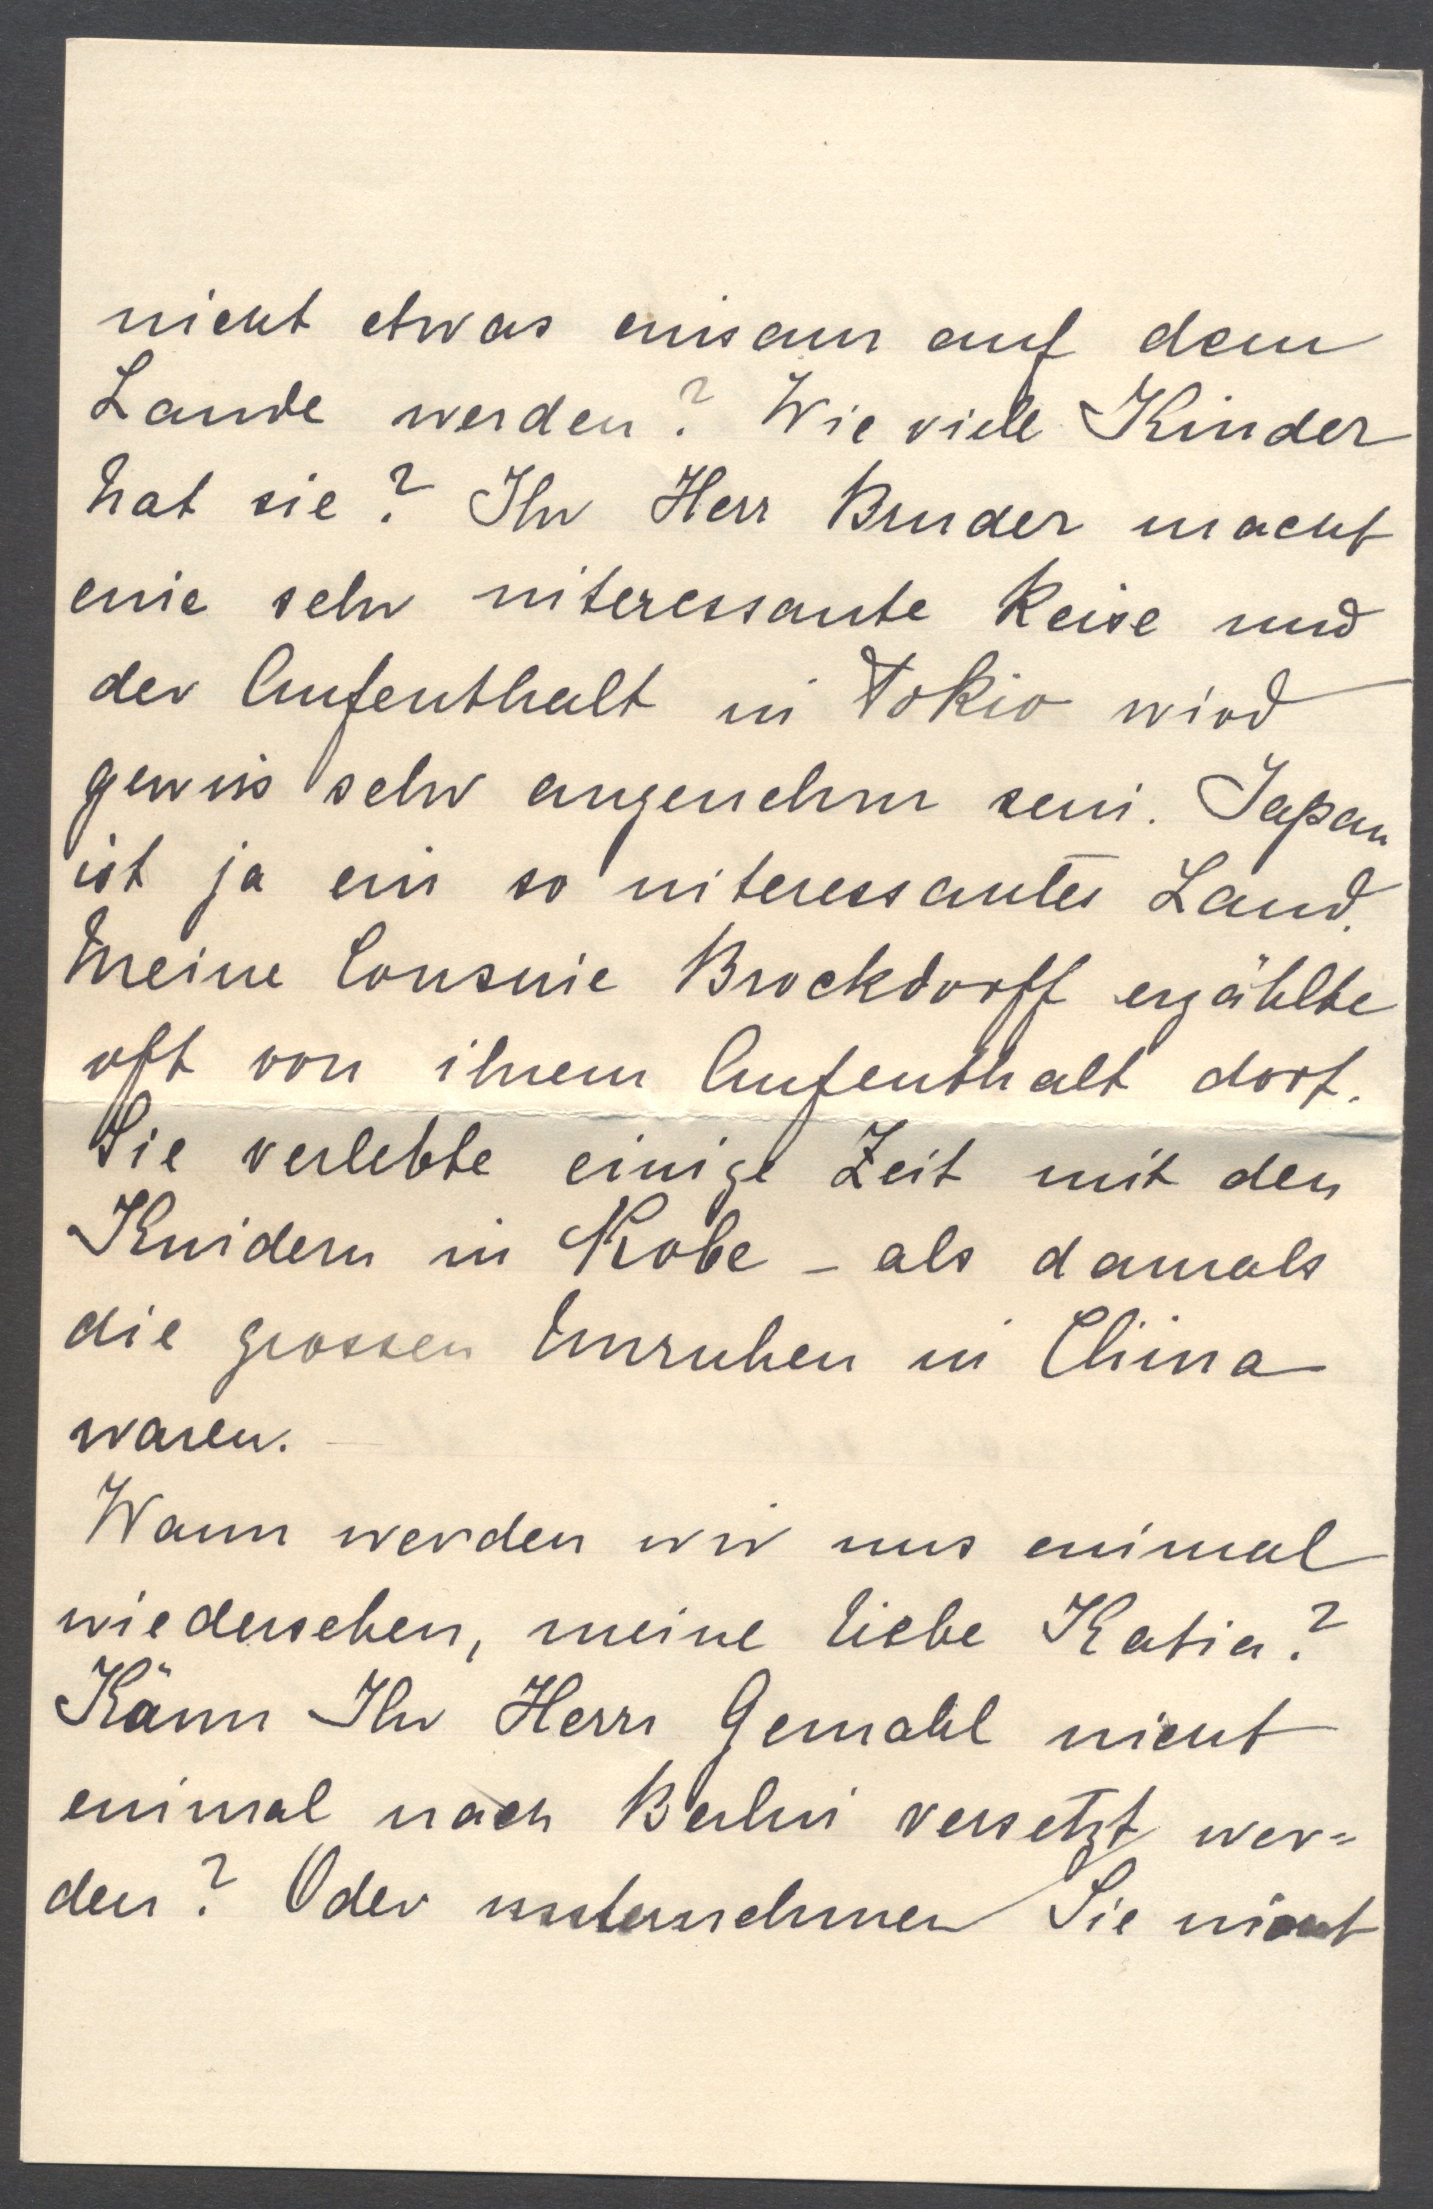 nicht etwas einsam auf dem
Lande werden? Wie viele Kinder
hat sie? Ihr Herr Bruder macht
eine sehr interessante Reise und
der Aufenthalt in Tokio wird
gewiss sehr angenehm sein. Japan
ist ja ein so interessantes Land.
Meine Cousine Brockdorff erzählte
oft von ihrem Aufenthalt dort.
Sie verlebte einige Zeit mit den
Kindern in Kobe - als damals
die grossen Unruhen in China
waren. -
Wann werden wir uns einmal
wiedersehen, meine liebe Katia?
Kann Ihr Herr Gemahl nicht
einmal nach Berlin versetzt wer=
den? Oder unternehmen Sie nicht